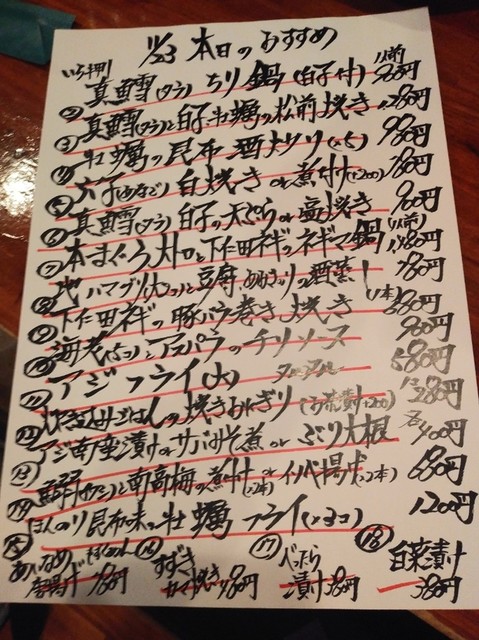 11/23 本日のおすすめ
いち押し 真鱈(タラ)ちり鍋(白子付) 1人前 980円
② 真鱈(タラ)と白子、牡蠣の松前焼き 1280円
③ 牡蠣の昆布酒炒り 980円
穴子(あなご)白焼き or 煮付け(+200) 780円
⑤ 真鱈(タラ)白子の天ぷら or 塩焼き 900円
⑥ 本まぐろ大トロと下仁田ネギのネギマ鍋(1人前) 1480円
⑦ 地ハマグリ(大)と豆腐、の酒蒸し 780円
⑧ 下仁田ネギの豚バラ巻き焼き (1本) 680円
⑨ 海老とアスパラのチリソース 900円
⑩ アジフライ(大) タルタル 580円
⑪ ごはんの焼きおにぎり(お茶漬け+200) 1コ 280円
⑫ アジ南蛮漬け or サバみそ煮 or ぶり大根 各400円
⑬ 鰯(イワシ)と南高梅の煮付け(2本) or イソベ揚げ(2本) 680円
⑭ ほんのり昆布味の牡蠣フライ(×3コ) 1200円
⑮ あいなめ 唐揚げ 780円
⑯ すずき カマ焼き 780円
⑰ べったら漬け 380円
⑱ 白菜漬け 380円